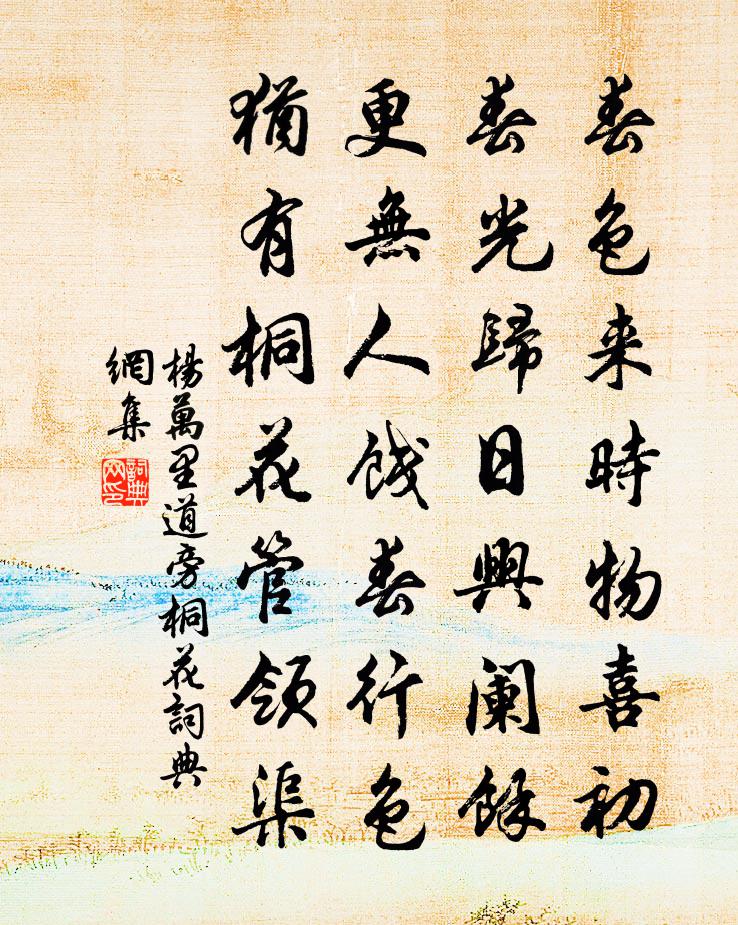 春色来時物喜初
春光歸日興闌餘
更無人餞春行色
猶有桐花管領渠
楊萬里道旁桐花詞典
網集
詞典網印